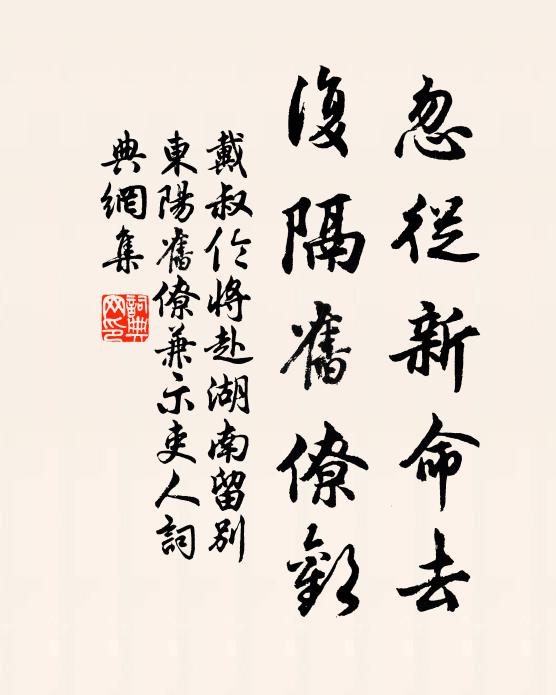 忽從新命去
復隔舊僚歡
戴叔伦將赴湖南留別
東陽舊僚兼示吏人詞
典網集
詞典网印